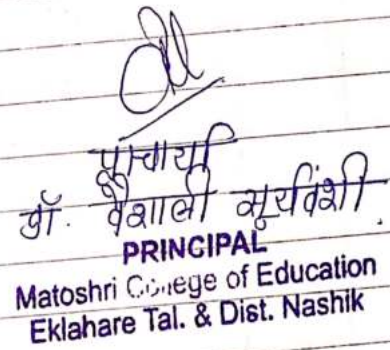 प्राचार्या
डॉ. वैशाली सूर्यवंशी
PRINCIPAL
Matoshri College of Education
Eklahare Tal. & Dist. Nashik